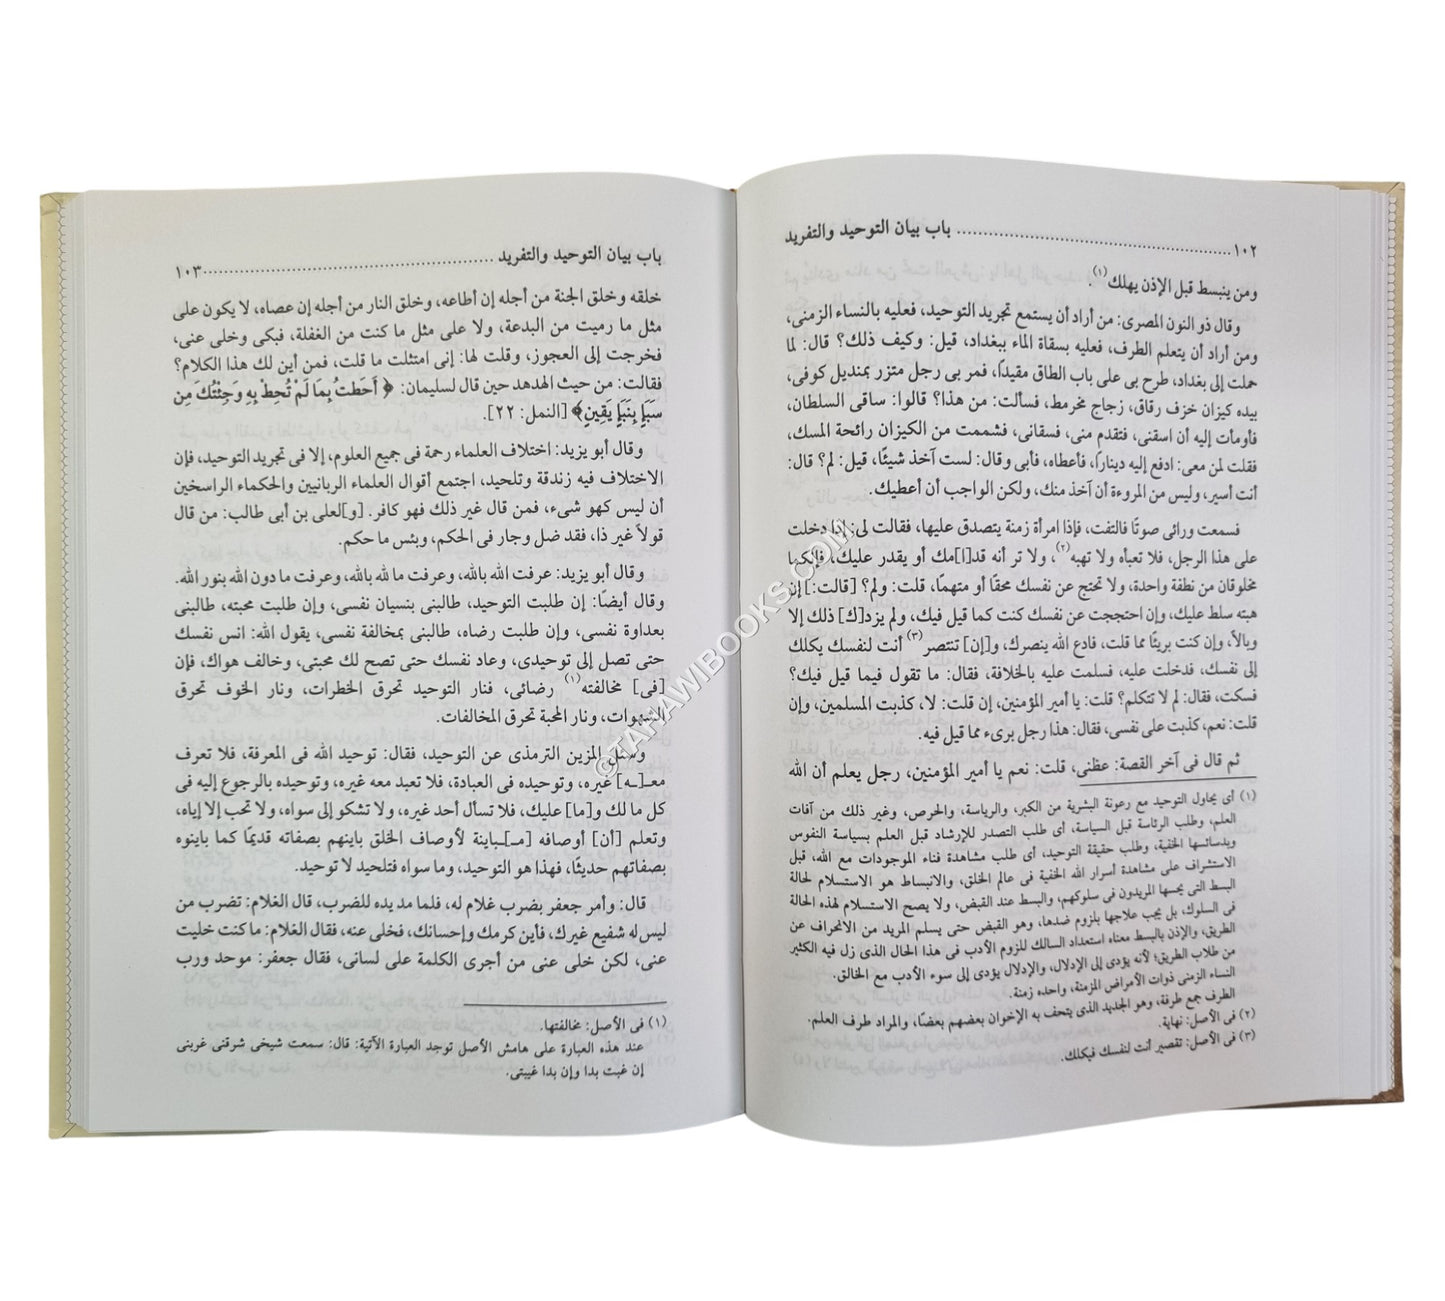 ١٠٢ ........................ باب بيان التوحيد والتفريد
ومن ينبسط قبل الإذن يهلك(١).
وقال ذو النون المصرى: من أراد أن يستمع تجريد التوحيد، فعليه بالنساء الزمنى،
ومن أراد أن يتعلم الطرف، فعليه بسقاة الماء ببغداد، قيل: وكيف ذلك؟ قال: لما
حملت إلى بغداد، طرح بى على باب الطاق مقيدًا، فمر بى رجل متزر بمنديل كوفى،
بيده كيزان خزف رقاق، زجاج مخرمط، فسألت: من هذا؟ قالوا: ساقى السلطان،
فأومأت إليه أن اسقنى، فتقدم منى، فسقانى، فشممت من الكيزان رائحة المسك،
فقلت لمن معى: ادفع إليه دينارًا، فأعطاه، فأبى وقال: لست آخذ شيئًا، قيل: لم؟ قال:
أنت أسير، وليس من المروءة أن آخذ منك، ولكن الواجب أن أعطيك.
فسمعت ورائى صوتًا فالتفت، فإذا امرأة زمنة يتصدق عليها، فقالت لى: إذا دخلت
على هذا الرجل، فلا تعبأه ولا تهبه(٢)، ولا تر أنه قد[ا]مك أو يقدر عليك، فإنكما
مخلوقان من نطفة واحدة، ولا تحتج عن نفسك محقًا أو متهمًا، قلت: ولم؟ [قالت:] إن
هبته سلط عليك، وإن احتججت عن نفسك كنت كما قيل فيك، ولم يزد[ك] ذلك إلا
وبالاً، وإن كنت بريئًا مما قلت، فادع الله ينصرك، و[إن] تنتصر(٣) أنت لنفسك يكلك
إلى نفسك، فدخلت عليه، فسلمت عليه بالخلافة، فقال: ما تقول فيما قيل فيك؟
فسكت، فقال: لم لا تتكلم؟ قلت: يا أمير المؤمنين، إن قلت: لا، كذبت المسلمين، وإن
قلت: نعم، كذبت على نفسى، فقال: هذا رجل برىء مما قيل فيه.
ثم قال فى آخر القصة: عظنى، قلت: نعم يا أمير المؤمنين، رجل يعلم أن الله
(١) أى يحاول التوحيد مع رعونة البشرية من الكبر، والرياسة، والحرص، وغير ذلك من آفات
العلم، وطلب الرئاسة قبل السياسة، أى طلب التصدر للإرشاد قبل العلم بسياسة النفوس
وبدسائسها الخفية، وطلب حقيقة التوحيد، أى طلب مشاهدة فناء الموجودات مع الله، قبل
الاستشراف على مشاهدة أسرار الله الخفية فى عالم الخلق، والانبساط هو الاستسلام لحالة
البسط التى يحسها المريدون فى سلوكهم، والبسط عند القبض، ولا يصح الاستسلام لهذه الحالة
فى السلوك، بل يجب علاجها بلزوم ضدها، وهو القبض حتى يسلم المريد من الانحراف عن
الطريق، والإذن بالبسط معناه استعداد السالك للزوم الأدب فى هذا الحال الذى زل فيه الكثير
من طلاب الطريق؛ لأنه يؤدى إلى الإدلال، والإدلال يؤدى إلى سوء الأدب مع الخالق.
النساء الزمنى ذوات الأمراض المزمنة، واحده زمنة.
الطرف جمع طرفة، وهو الجديد الذى يتحف به الإخوان بعضهم بعضًا، والمراد طرف العلم.
(٢) فى الأصل: نهاية.
(٣) فى الأصل: تقصير أنت لنفسك فيكلك.
باب بيان التوحيد والتفريد ........................ ١٠٣
خلقه وخلق الجنة من أجله إن أطاعه، وخلق النار من أجله إن عصاه، لا يكون على
مثل ما رميت من البدعة، ولا على مثل ما كنت من الغفلة، فبكى وخلى عنى،
فخرجت إلى العجوز، وقلت لها: إنى امتثلت ما قلت، فمن أين لك هذا الكلام؟
فقالت: من حيث الهدهد حين قال لسليمان: ﴿ أَحَطتُ بِمَا لَمْ تُحِطْ بِهِ وَجِئْتُكَ مِن
سَبَإٍ بِنَبَإٍ يَقِينٍ﴾ [النمل: ٢٢].
وقال أبو يزيد: اختلاف العلماء رحمة فى جميع العلوم، إلا فى تجريد التوحيد، فإن
الاختلاف فيه زندقة وتلحيد، اجتمع أقوال العلماء الربانيين والحكماء الراسخين
أن ليس كهو شىء، فمن قال غير ذلك فهو كافر. [و]لعلى بن أبى طالب: من قال
قولاً غير ذا، فقد ضل وجار فى الحكم، وبئس ما حكم.
وقال أبو يزيد: عرفت الله بالله، وعرفت ما لله بالله، وعرفت ما دون الله بنور الله.
وقال أيضًا: إن طلبت التوحيد، طالبنى بنسيان نفسى، وإن طلبت محبته، طالبنى
بعداوة نفسى، وإن طلبت رضاه، طالبنى بمخالفة نفسى، يقول الله: انس نفسك
حتى تصل إلى توحيدى، وعاد نفسك حتى تصح لك محبتى، وخالف هواك، فإن
[فى] مخالفته(١) رضائى، فنار التوحيد تحرق الخطرات، ونار الخوف تحرق
الشهوات، ونار المحبة تحرق المخالفات.
وسئل المزين الترمذى عن التوحيد، فقال: توحيد الله فى المعرفة، فلا تعرف
معـ[ـه] غيره، وتوحيده فى العبادة، فلا تعبد معه غيره، وتوحيده بالرجوع إليه فى
كل ما لك و[ما] عليك، فلا تسأل أحد غيره، ولا تشكو إلى سواه، ولا تحب إلا إياه،
وتعلم [أن] أوصافه [مـ]ـباينة لأوصاف الخلق باينهم بصفاته قديمًا كما باينوه
بصفاتهم حديثًا، فهذا هو التوحيد، وما سواه فتلحيد لا توحيد.
قال: وأمر جعفر بضرب غلام له، فلما مد يده للضرب، قال الغلام: تضرب من
ليس له شفيع غيرك، فأين كرمك وإحسانك، فخلى عنه، فقال الغلام: ما كنت خليت
عنى، لكن خلى عنى من أجرى الكلمة على لسانى، فقال جعفر: موحد ورب
(١) فى الأصل: مخالفتها.
عند هذه العبارة على هامش الأصل توجد العبارة الآتية: قال: سمعت شيخى شرقنى غربنى
إن غبت بدا وإن بدا غيبتى.
©TAHAWIBOOKS.COM